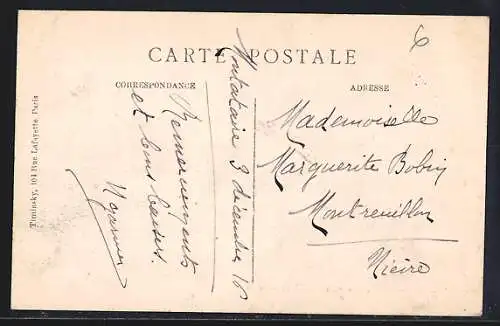 6
CARTE POSTALE
CORRESPONDANCE
ADRESSE
Montataire 3 décembre 16
Remerciements
et bons baisers.
Mademoiselle
Marguerite Bobin
Montreuillon
Nièvre
104 Rue Lafayette, Paris